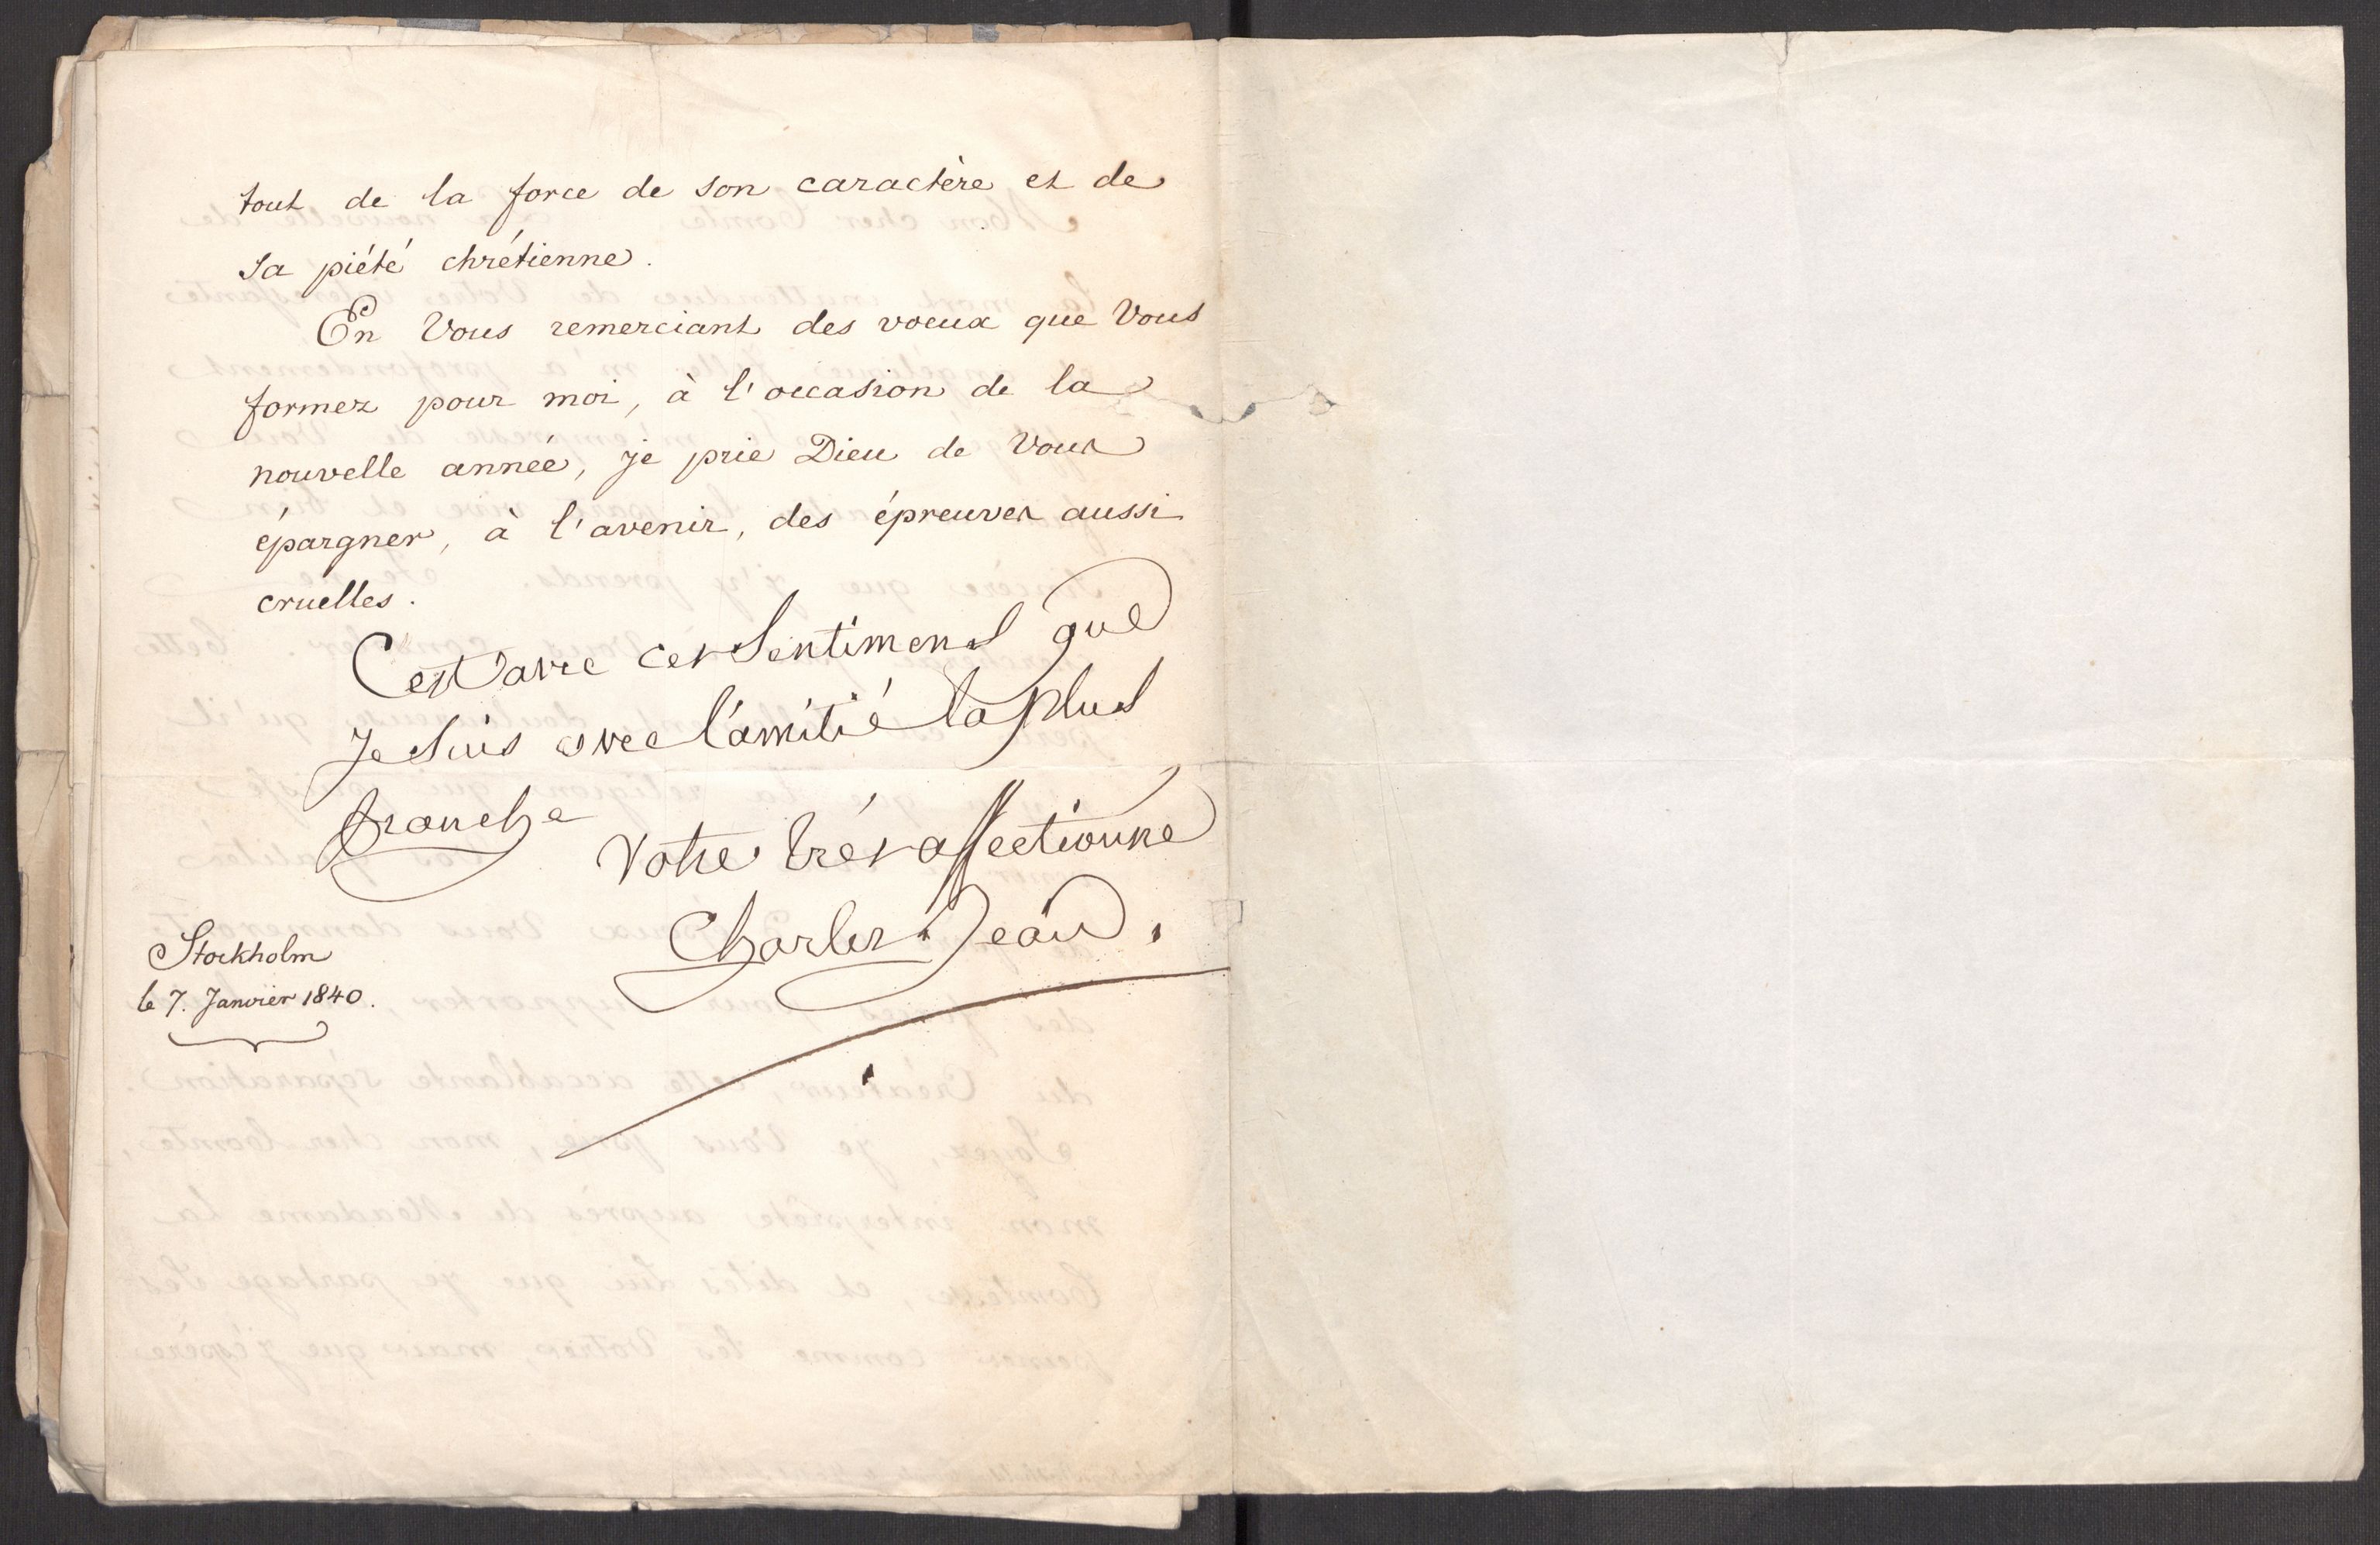 tout de la force de son caractère et de
sa piété chrétienne.
En Vous remerciant des voeux que Vous
formez pour moi, à l'occasion de la
nouvelle année, je prie Dieu de Vous
épargner, à l'avenir, des épreuves aussi
cruelles.
C'est avec ces Sentimens que
Je Suis avec l'amitié la plus
franche
Votre très affectionné
Charles Jean.
Stockholm
le 7. Janvier 1840.